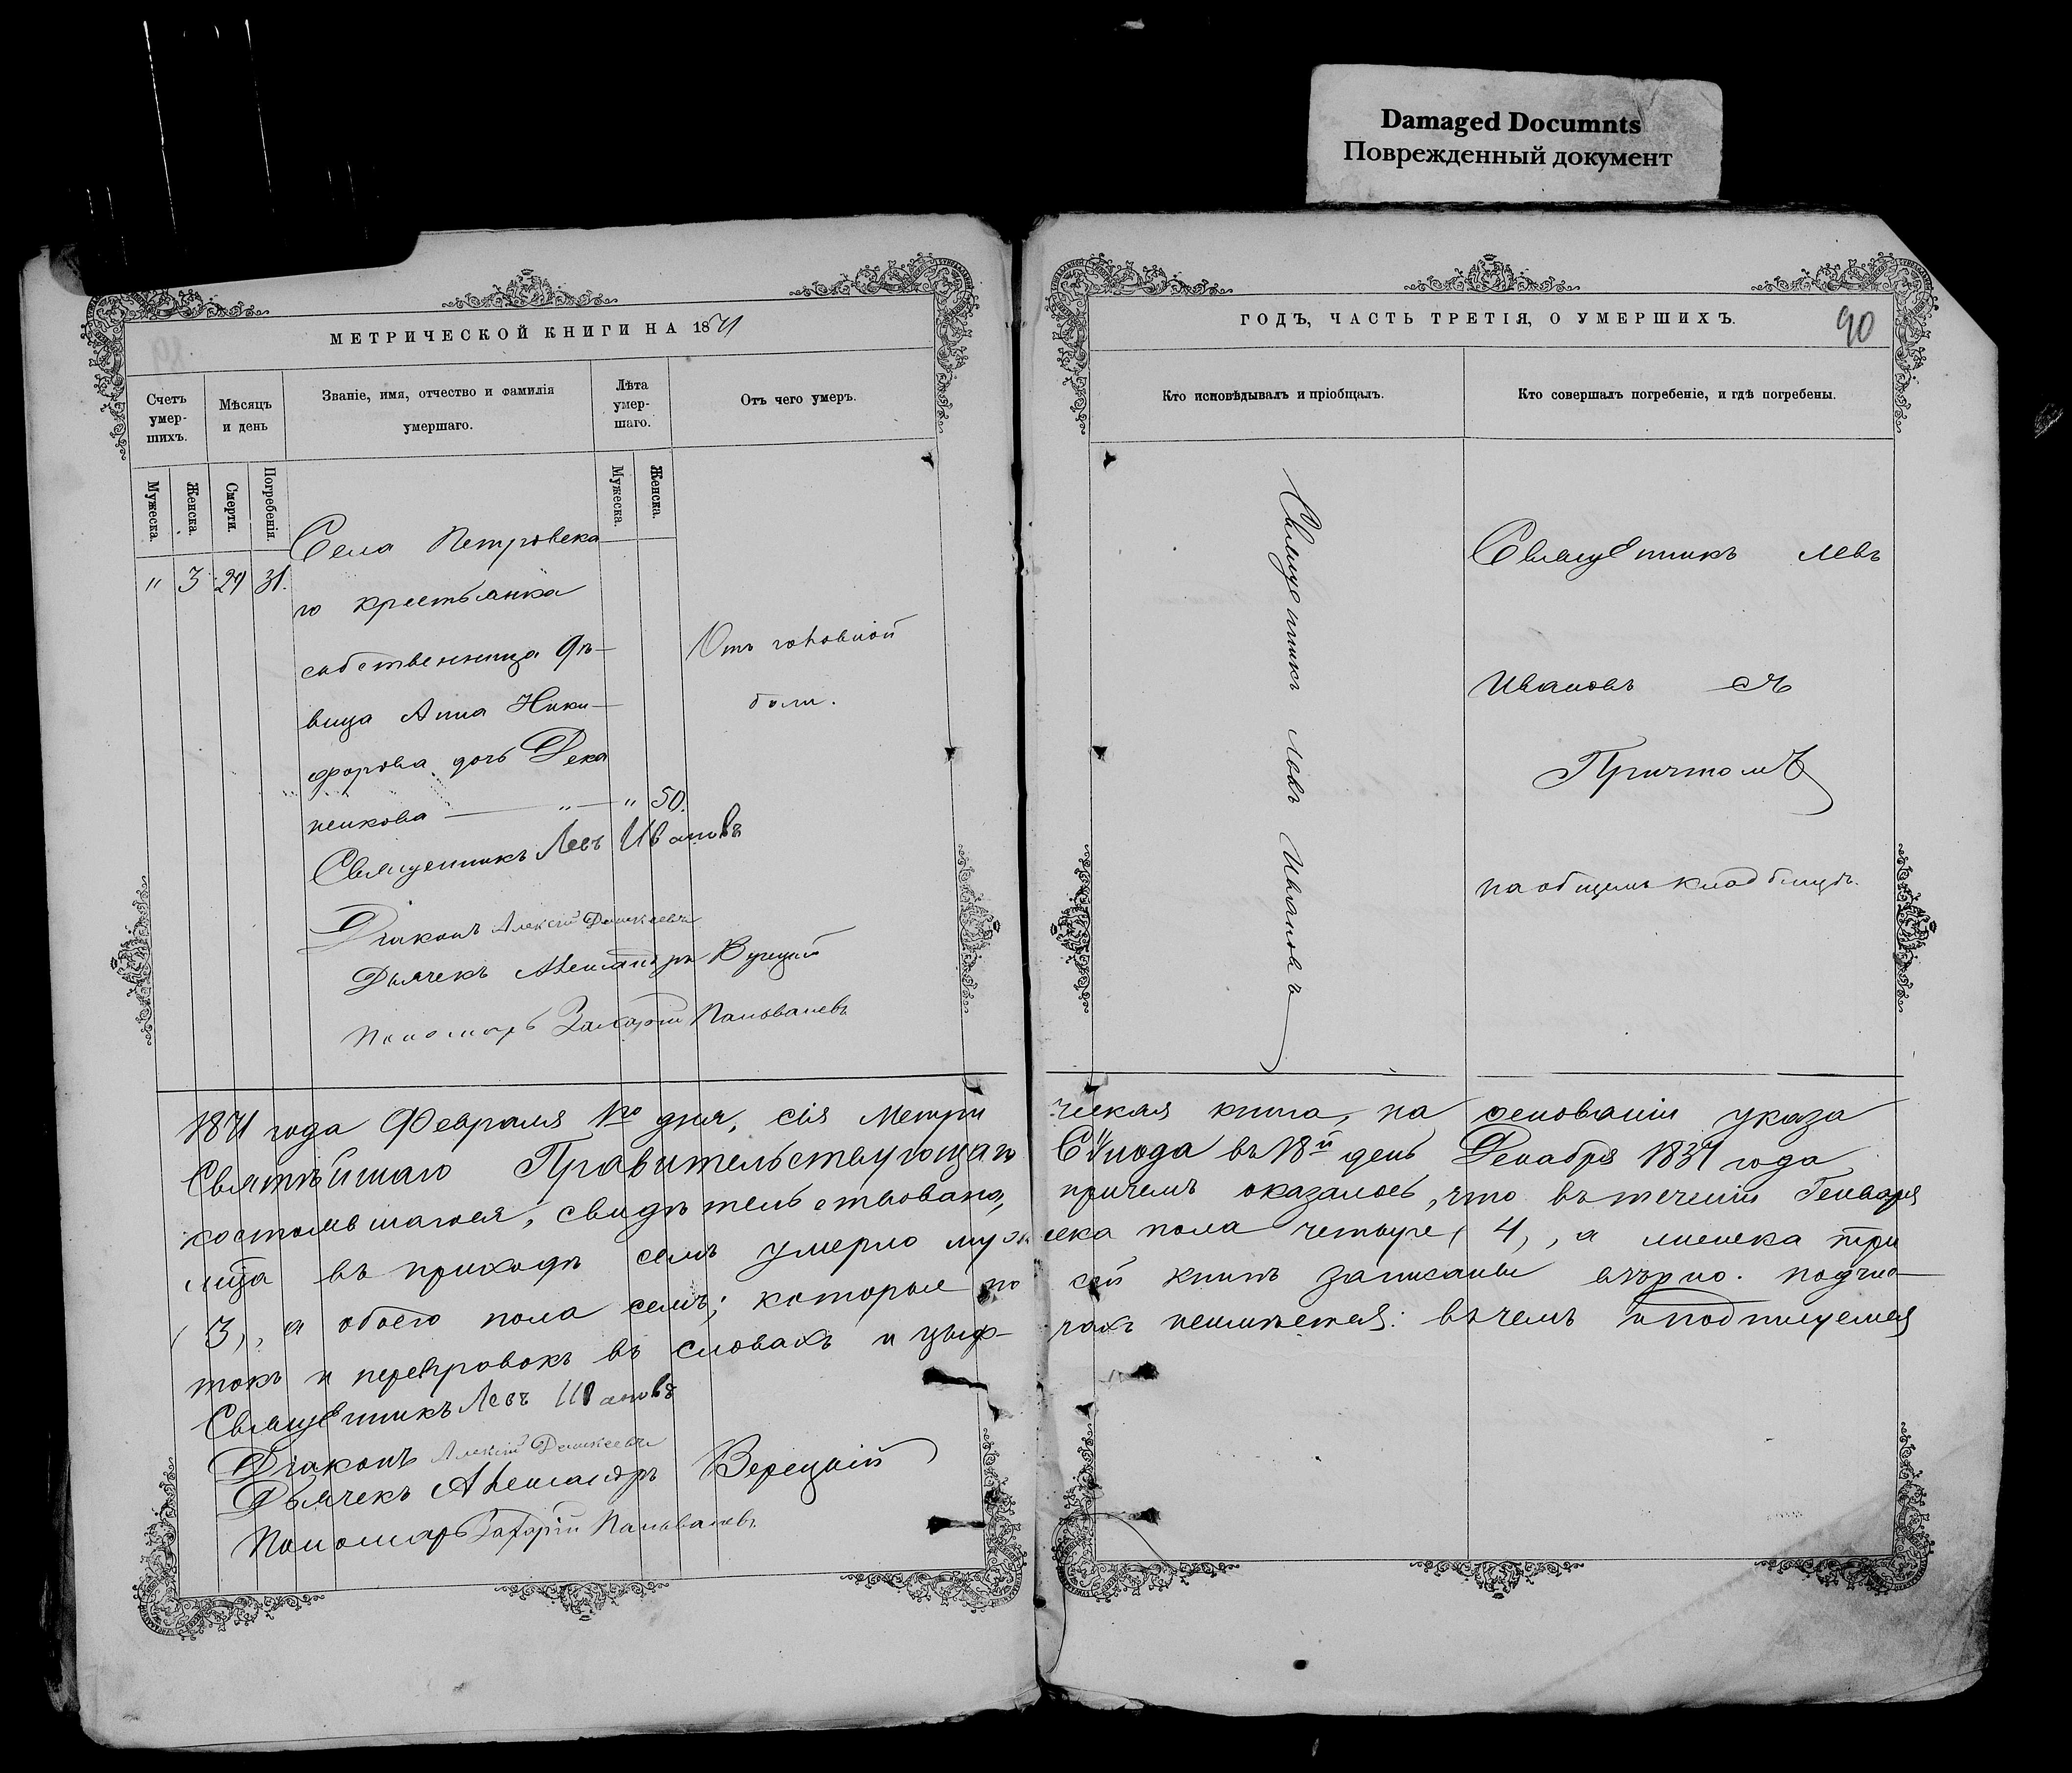 Damaged Documnts
Поврежденный документ
МЕТРИЧЕСКОЙ КНИГИ НА 1871
Счетъ умер-шихъ.
Мѣсяцъ и день
Званіе, имя, отчество и фамилія умершаго.
Лѣта умер-шаго.
Отъ чего умеръ.
Мужеска.
Женска.
Смерти.
Погребенія.
Мужеска.
Женска.
" 3 29 31.
Села Петровска
го крестьянка
собственница дѣ-
вица Анна Ники-
форова дочь
пенкова — " — " 50.
Отъ головной
боли.
Священникъ Левъ Ивановъ
Діаконъ Алексій
Дьячекъ Александръ Верецкій
Пономарь Захарій
1871 года Февраля 1го дня, сія Метри
Святѣйшаго Правительствующаго
состоявшагося, свидѣтельствована,
мца въ приходѣ семъ умерло муж
(3), а обоего пола семь; которые по
токъ и переправокъ въ словахъ и цыф-
Священникъ Левъ Ивановъ
Діаконъ Алексій
Дьячекъ Александръ Верецкій
Пономарь Захарій
ГОДЪ, ЧАСТЬ ТРЕТІЯ, О УМЕРШИХЪ.
90
Кто исповѣдывалъ и пріобщалъ.
Кто совершалъ погребеніе, и гдѣ погребены.
Священникъ Левъ Ивановъ
Священникъ Левъ
Ивановъ съ
Причтомъ
на общемъ кладбищѣ.
ческая книга, на основаніи указа
Сѵнода въ 18й день Декабря 1837 года
причемъ оказалось, что въ теченіи Генваря
еска пола четыре (4), а женска три
сей книгѣ записаны вѣрно. подчис-
рахъ неимѣется: въ чемъ и подпишемся